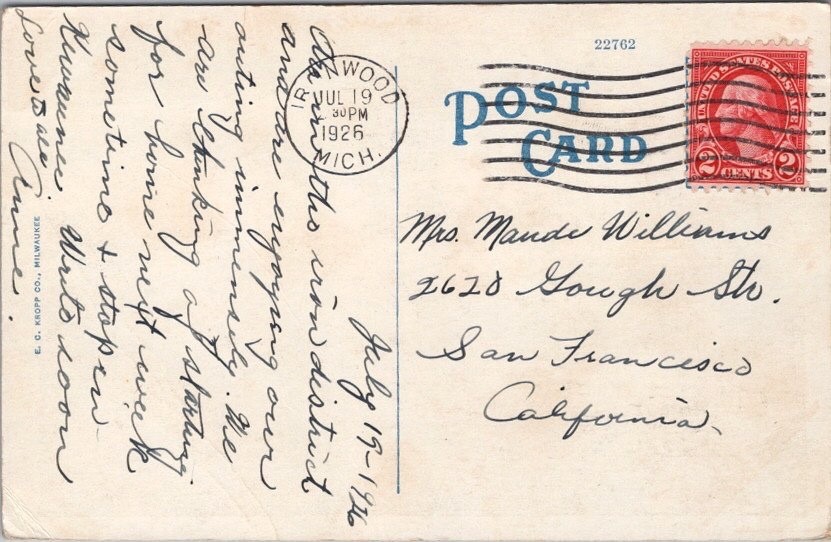 22762
POST
CARD
IRONWOOD
JUL 19
30 PM
1926
MICH.
UNITED STATES POSTAGE
2 CENTS 2
Mrs. Maude Williams
2620 Gough Str.
San Francisco
California
July 19-1926
Are in the iron district
and are enjoying our
outing immensely. We
are thinking of starting
for home next week
sometime & stop in
Kewaunee. Write soon
Love to all
Anne.
E. C. KROPP CO., MILWAUKEE